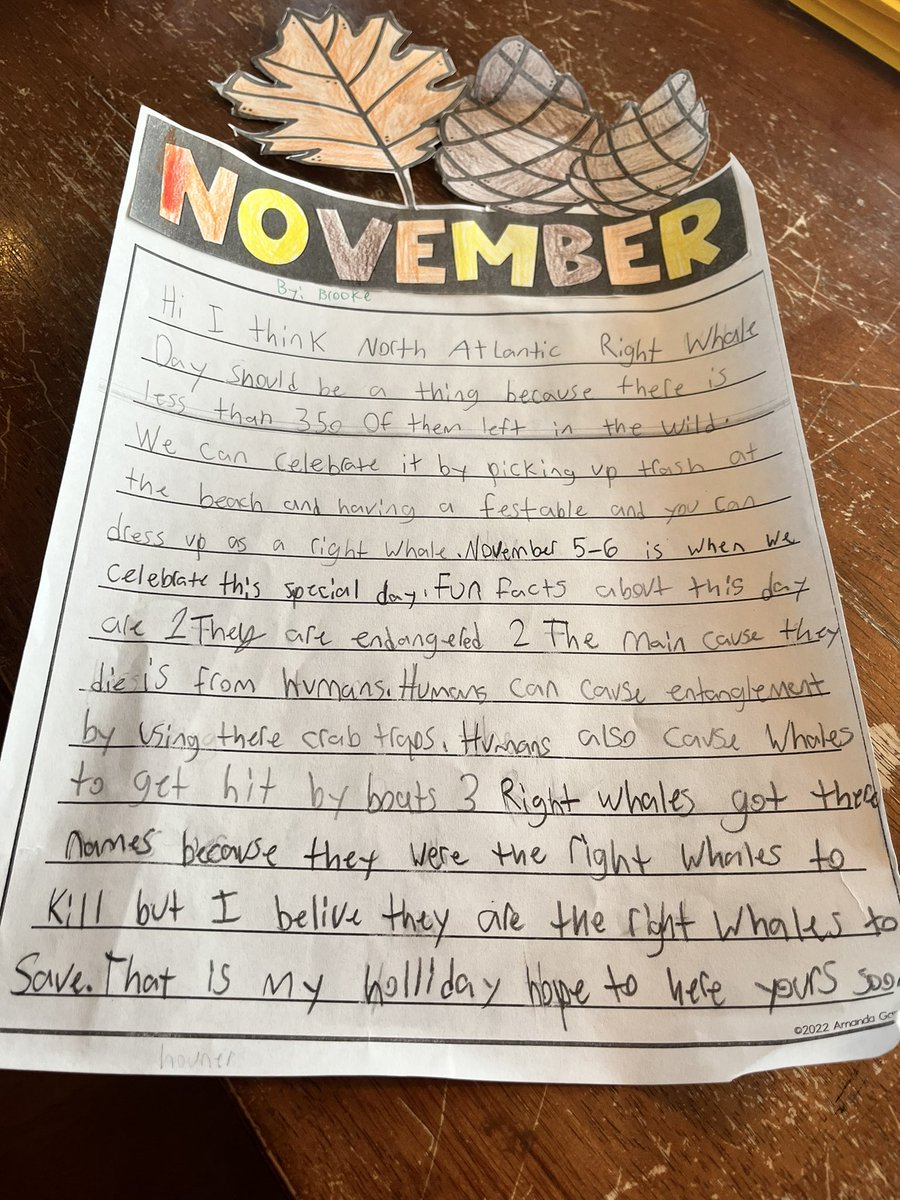 NOVEMBER
By: Brooke
Hi I think North Atlantic Right Whale
Day should be a thing because there is
less than 350 of them left in the wild.
We can celebrate it by picking up trash at
the beach and having a festable and you can
dress up as a right whale. November 5-6 is when we
celebrate this special day. Fun facts about this day
are 1 They are endangered 2 The main cause they
die is from Humans. Humans can cause entanglement
by using there crab traps. Humans also cause whales
to get hit by boats 3 Right whales got there
names because they were the right whales to
kill but I belive they are the right whales to
save. That is my holliday hope to here yours soon
©2022 Amanda